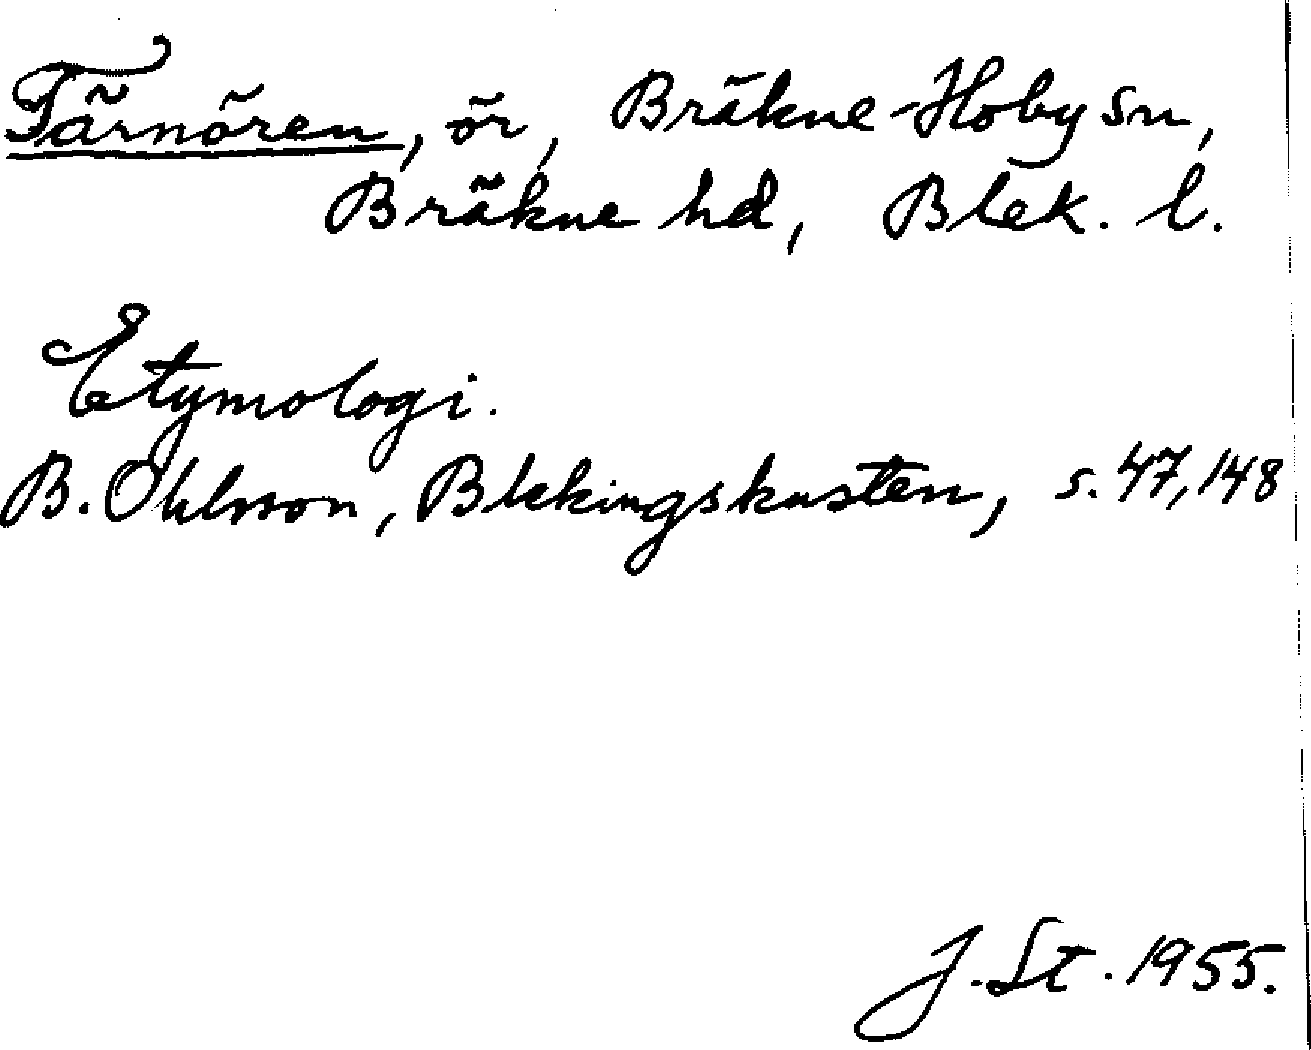 Tärnören, ör, Bräkne-Hoby sn,
Bräkne hd, Blek. l.
Etymologi.
B. Ohlsson, Blekingskusten, s. 47, 148
J. St. 1955.